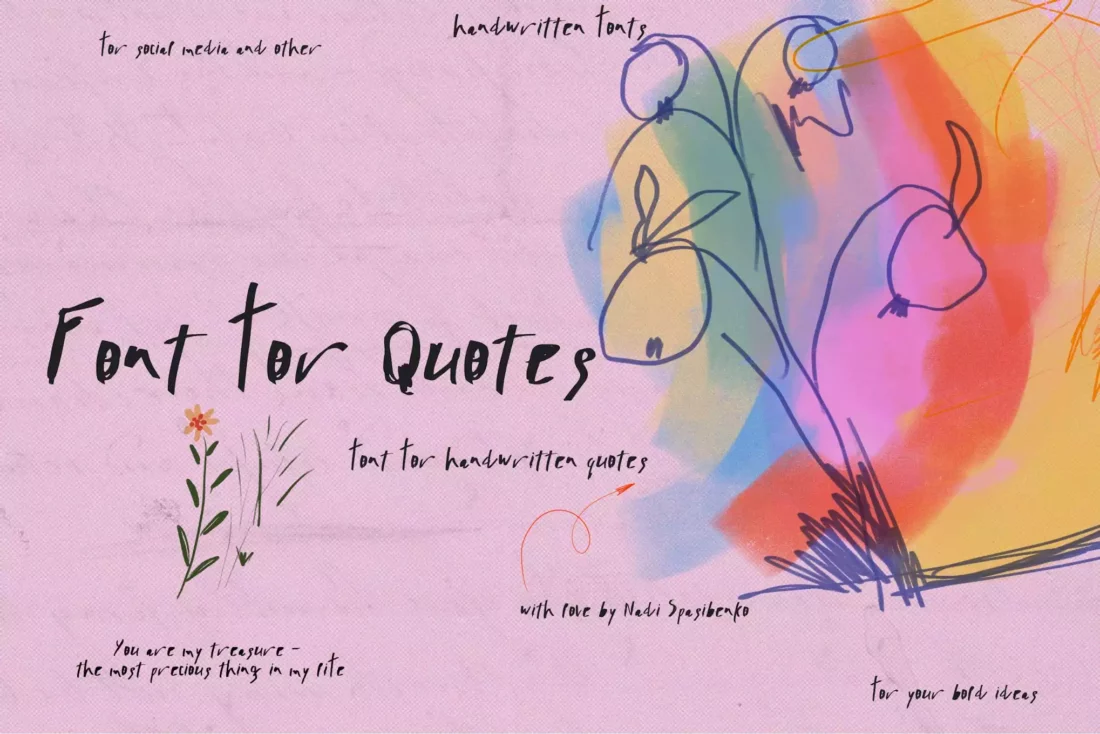 handwritten fonts
for social media and other
Font for Quotes
font for handwritten quotes
with love by Nadi Spasibenko
You are my treasure –
the most precious thing in my life
for your bold ideas